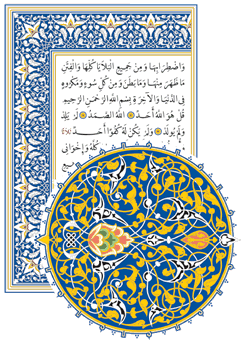 وَاضْطِرَابِهَا وَمِنْ جَمِيعِ الْبَلَايَا كُلِّهَا وَالْفِتَنِ
مَا ظَهَرَ مِنْهَا وَمَا بَطَنَ وَمِنْ كُلِّ سُوءٍ وَمَكْرُوهٍ
فِي الدُّنْيَا وَالْآخِرَةِ بِسْمِ اللّٰهِ الرَّحْمٰنِ الرَّحِيمِ
قُلْ هُوَ اللّٰهُ أَحَدٌ اللّٰهُ الصَّمَدُ لَمْ يَلِدْ
وَلَمْ يُولَدْ وَلَمْ يَكُنْ لَهُ كُفُوًا أَحَدٌ
كُلِّهِ وَإِخْوَانِي